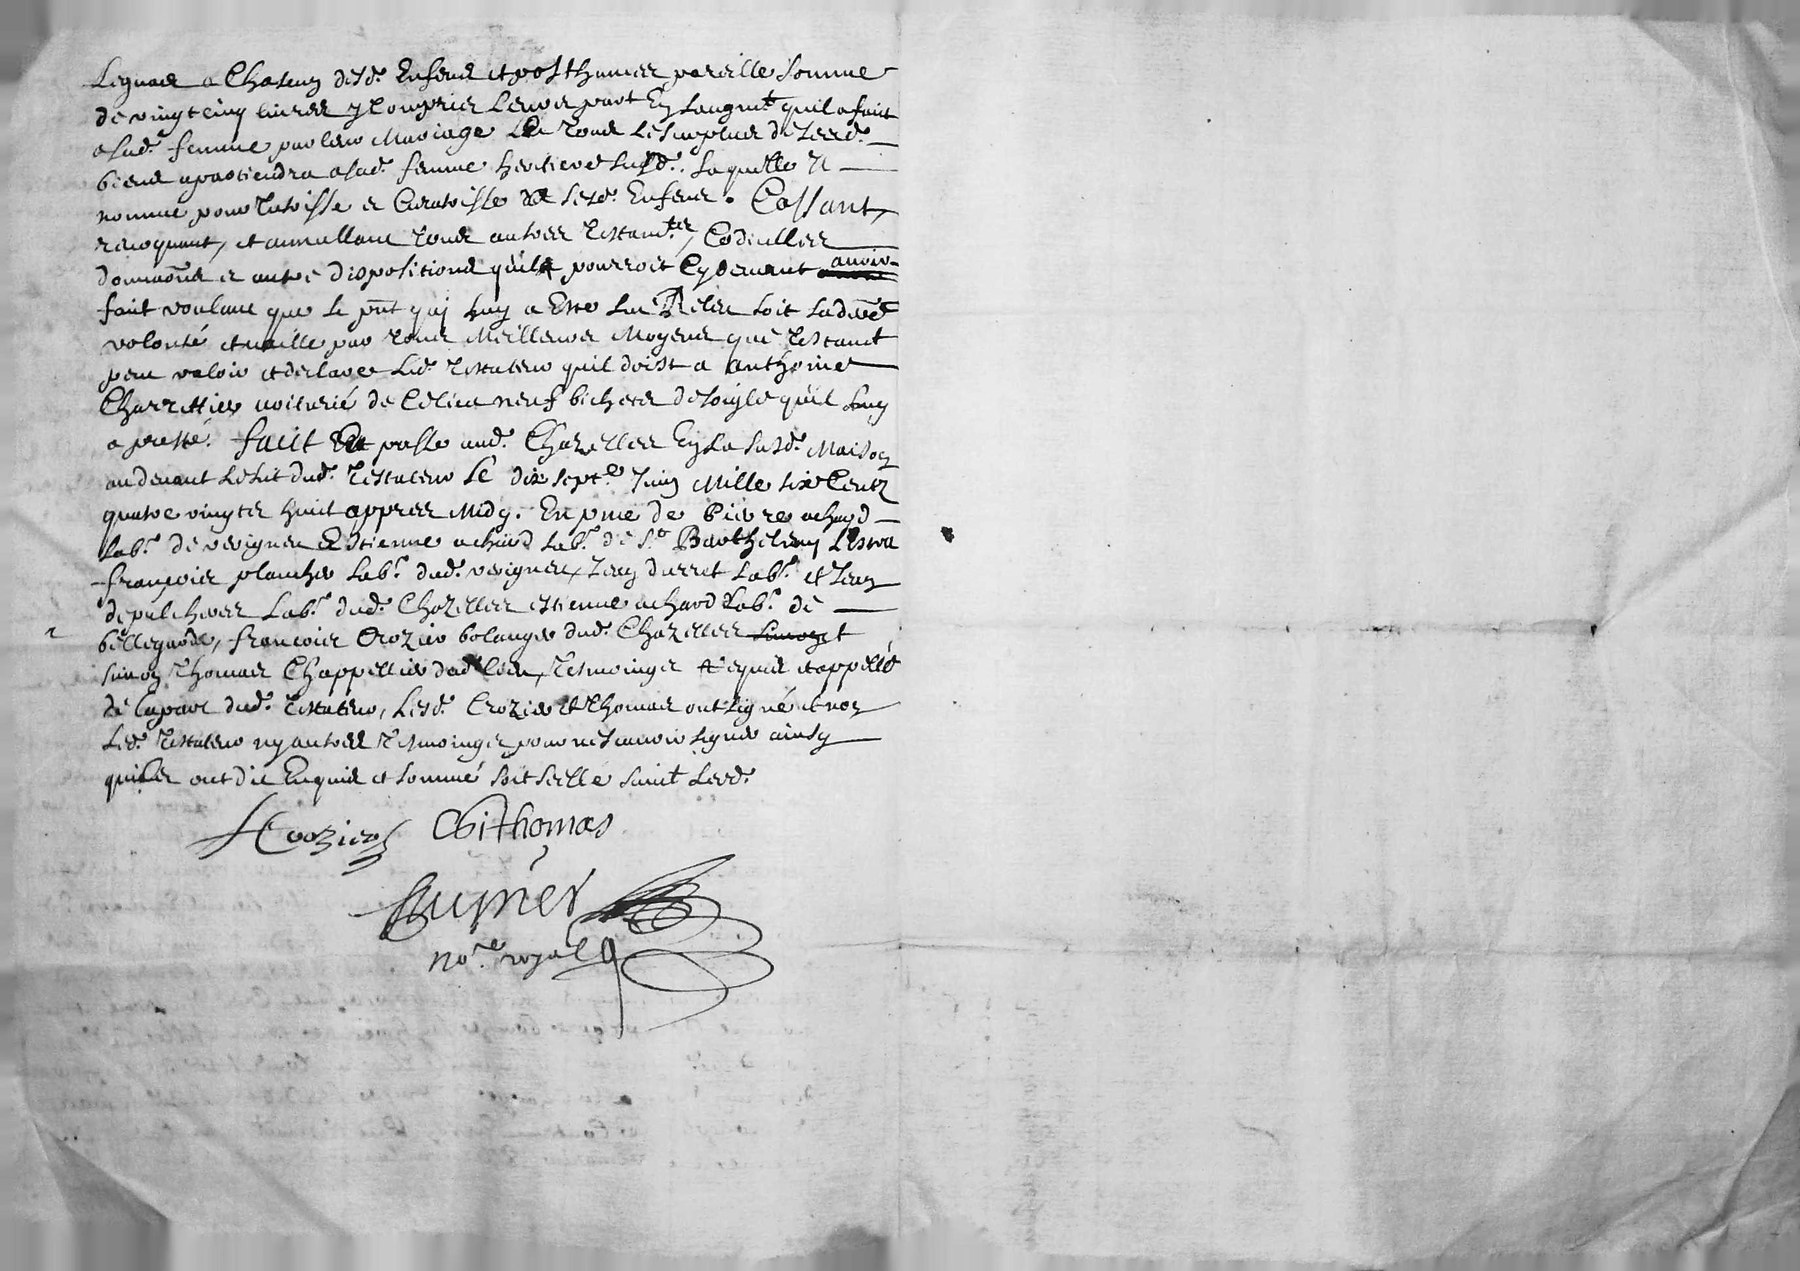 Leguant a Chascung desd. Enfens et posthumes pareille somme
de vingt cinq livres y Compries Leurs part En Laugmt. quil a faict
a sad. femme par leur Mariage Et tous Le surplus de sesd.
biens apartiendra a sad. femme heritiere susd. Laquelle Il
nomme pour tutrisse et Curatrisse de sesd. Enfens. Cassant,
revoquant, et annullant tous autres testamts., Codicilles
donnaons et autre dispositions quil pourroit Cydevant avoir
fait voulant que le pnt qui luy a Esté leu Releu soit sa dre
volonté et vaille par tous Meilleurs Moyens que testamt
peut valoir et declare Led. testateur quil doist a anthoine
Charrettier voiturié de neuf bichets de soigle quil luy
a presté. faict Et passé aud. Chazelles En La susd. Maison
au devant Le lict dud. testateur Le dix septe. Juin Mille six Centz
quatre vingtz huict appres Midy. En pnce de pierre achard
Labr. de vevigneu Estienne achard Labr. de St. Barthelemy Lestra
françois planchet Labr. dud. vevigneu, Jean durret Labr. et Jean
depulcheres Labr. dud. Chazelles estienne achard Labr. de
bellegarde, françois Crozier bolanger dud. Chazelles Simon et
simon thomas Chappellier dud. Lieu, tesmoingz requis et appellé
de la part dud. testateur, Lesd. Crozier Et thomas ont signé et non
Led. testateur ny autres tesmoingz pour ne scavoir signer ainsy
quilz ont dit Enquis et sommé soit seellé suict Lesd.
fCrozier Thomas
no.re royal